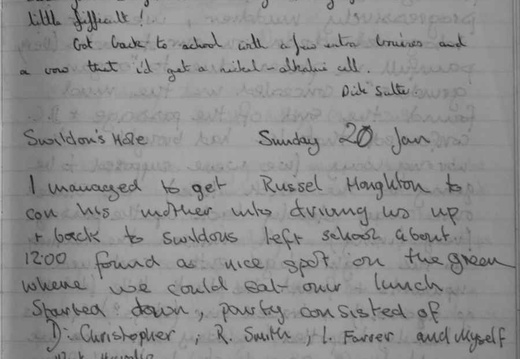 little difficult!
Got back to school with a few extra bruises and
a vow that i'd get a nickel-alkaline cell.
Dick
Swildon's Hole Sunday 20 Jan
I managed to get Russel Houghton to
con his mother into driving us up
+ back to swildons left school about
12:00 found a nice spot on the green
where we could eat our lunch
Started down, party consisted of
D. Christopher, R. Smith, I. Farrer and Myself